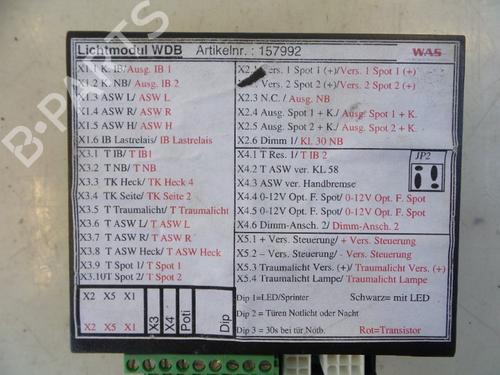 Lichtmodul WDB Artikelnr. : 157992 WAS
X1.1 K. IB/ Ausg. IB 1
X1.2 K. NB/ Ausg. IB 2
X1.3 ASW L/ ASW L
X1.4 ASW R/ ASW R
X1.5 ASW H/ ASW H
X1.6 IB Lastrelais/ IB Lastrelais
X3.1 T IB/ T IB1
X3.2 T NB/ T NB
X3.3 TK Heck/ TK Heck 4
X3.4 TK Seite/ TK Seite 2
X3.5 T Traumalicht/ T Traumalicht
X3.6 T ASW L/ T ASW L
X3.7 T ASW R/ T ASW R
X3.8 T ASW Heck/ T ASW Heck
X3.9 T Spot 1/ T Spot 1
X3.10T Spot 2/ T Spot 2
X2.1 Vers. 1 Spot 1 (+)/Vers. 1 Spot 1 (+)
X2.2 Vers. 2 Spot 2 (+)/Vers. 2 Spot 2 (+)
X2.3 N.C./ Ausg. NB
X2.4 Ausg. Spot 1 + K./ Ausg. Spot 1 + K.
X2.5 Ausg. Spot 2 + K./ Ausg. Spot 2 + K.
X2.6 Dimm 1/ KL 30 NB
X4.1 T Res. 1/ T IB 2
X4.2 T ASW ver. KL 58
X4.3 ASW ver. Handbremse
X4.4 0-12V Opt. F. Spot/ 0-12V Opt. F. Spot
X4.5 0-12V Opt. F. Spot/ 0-12V Opt. F. Spot
X4.6 Dimm-Ansch. 2/ Dimm-Ansch. 2
JP2
X5.1 + Vers. Steuerung/ + Vers. Steuerung
X5.2 – Vers. Steuerung/ - Vers. Steuerung
X5.3 Traumalicht Vers. (+)/ Traumalicht Vers. (+)
X5.4 Traumalicht Lampe/ Traumalicht Lampe
X2 X5 X1
X2 X5 X1
X3
X4
Poti
Dip
Dip 1=LED/Sprinter Schwarz= mit LED
Dip 2 = Türen Notlicht oder Nacht
Dip 3 = 30s bei Tür/Nötb. Rot=Transistor
B-PARTS